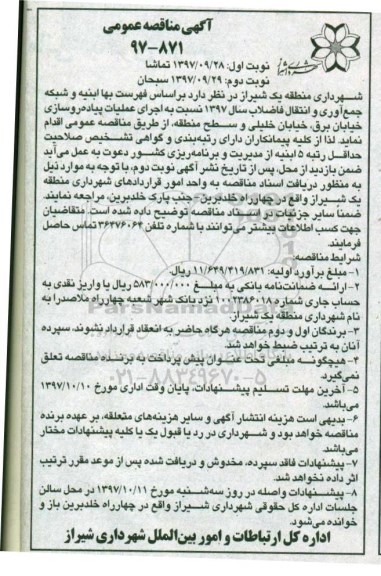 آگهی مناقصه عمومی
۹۷-۸۷۱
نوبت اول: ۱۳۹۷/۰۹/۲۸ تماشا
نوبت دوم: ۱۳۹۷/۰۹/۲۹ سبحان
شهرداری منطقه یک شیراز در نظر دارد براساس فهرست بها ابنیه و شبکه
جمع‌آوری و انتقال فاضلاب سال ۱۳۹۷ نسبت به اجرای عملیات پیاده‌روسازی
خیابان برق، خیابان خلیلی و سطح منطقه، از طریق مناقصه عمومی اقدام
نماید. لذا از کلیه پیمانکاران دارای رتبه‌بندی و گواهی تشخیص صلاحیت
حداقل رتبه ۵ ابنیه از مدیریت و برنامه‌ریزی کشور دعوت به عمل می‌آید
ضمن بازدید از محل، پس از تاریخ نشر آگهی نوبت دوم، با توجه به موارد ذیل
به منظور دریافت اسناد مناقصه به واحد امور قراردادهای شهرداری منطقه
یک شیراز واقع در چهارراه خلدبرین، جنب پارک خلدبرین، مراجعه نمایند.
ضمنا سایر جزئیات در اسناد مناقصه توضیح داده شده است. متقاضیان
جهت کسب اطلاعات بیشتر می‌توانند با شماره تلفن ۳۶۴۷۶۰۶۴ تماس حاصل
فرمایند.
شرایط مناقصه:
۱- مبلغ برآورد اولیه: ۱۱/۶۴۹/۴۱۹/۸۳۱ ریال.
۲- ارائه ضمانت‌نامه بانکی به مبلغ ۵۸۳/۰۰۰/۰۰۰ ریال یا واریز نقدی به
حساب جاری شماره ۱۰۰۲۳۸۶۰۱۸ نزد بانک شهر شعبه چهارراه ملاصدرا به
نام شهرداری منطقه یک شیراز.
۳- برندگان اول و دوم مناقصه هرگاه حاضر به انعقاد قرارداد نشوند، سپرده
آنان به ترتیب ضبط خواهد شد.
۴- هیچگونه مبلغی تحت عنوان پیش پرداخت به برنده مناقصه تعلق
نمی‌گیرد.
۵- آخرین مهلت تسلیم پیشنهادات، پایان وقت اداری مورخ ۱۳۹۷/۱۰/۱۰
می‌باشد.
۶- بدیهی است هزینه انتشار آگهی و سایر هزینه‌های متعلقه، بر عهده برنده
مناقصه خواهد بود و شهرداری در رد یا قبول یک یا کلیه پیشنهادات مختار
می‌باشد.
۷- پیشنهادات فاقد سپرده، مخدوش و دریافت شده پس از موعد مقرر ترتیب
اثر داده نخواهد شد.
۸- پیشنهادات واصله در روز سه‌شنبه مورخ ۱۳۹۷/۱۰/۱۱ در محل سالن
جلسات اداره کل حقوقی شهرداری شیراز واقع در چهارراه خلدبرین باز و
خوانده می‌شود.
اداره کل ارتباطات و امور بین‌الملل شهرداری شیراز
ParsNamadData
۰۲۱-۸۸۳۴۹۶۷۰-۵